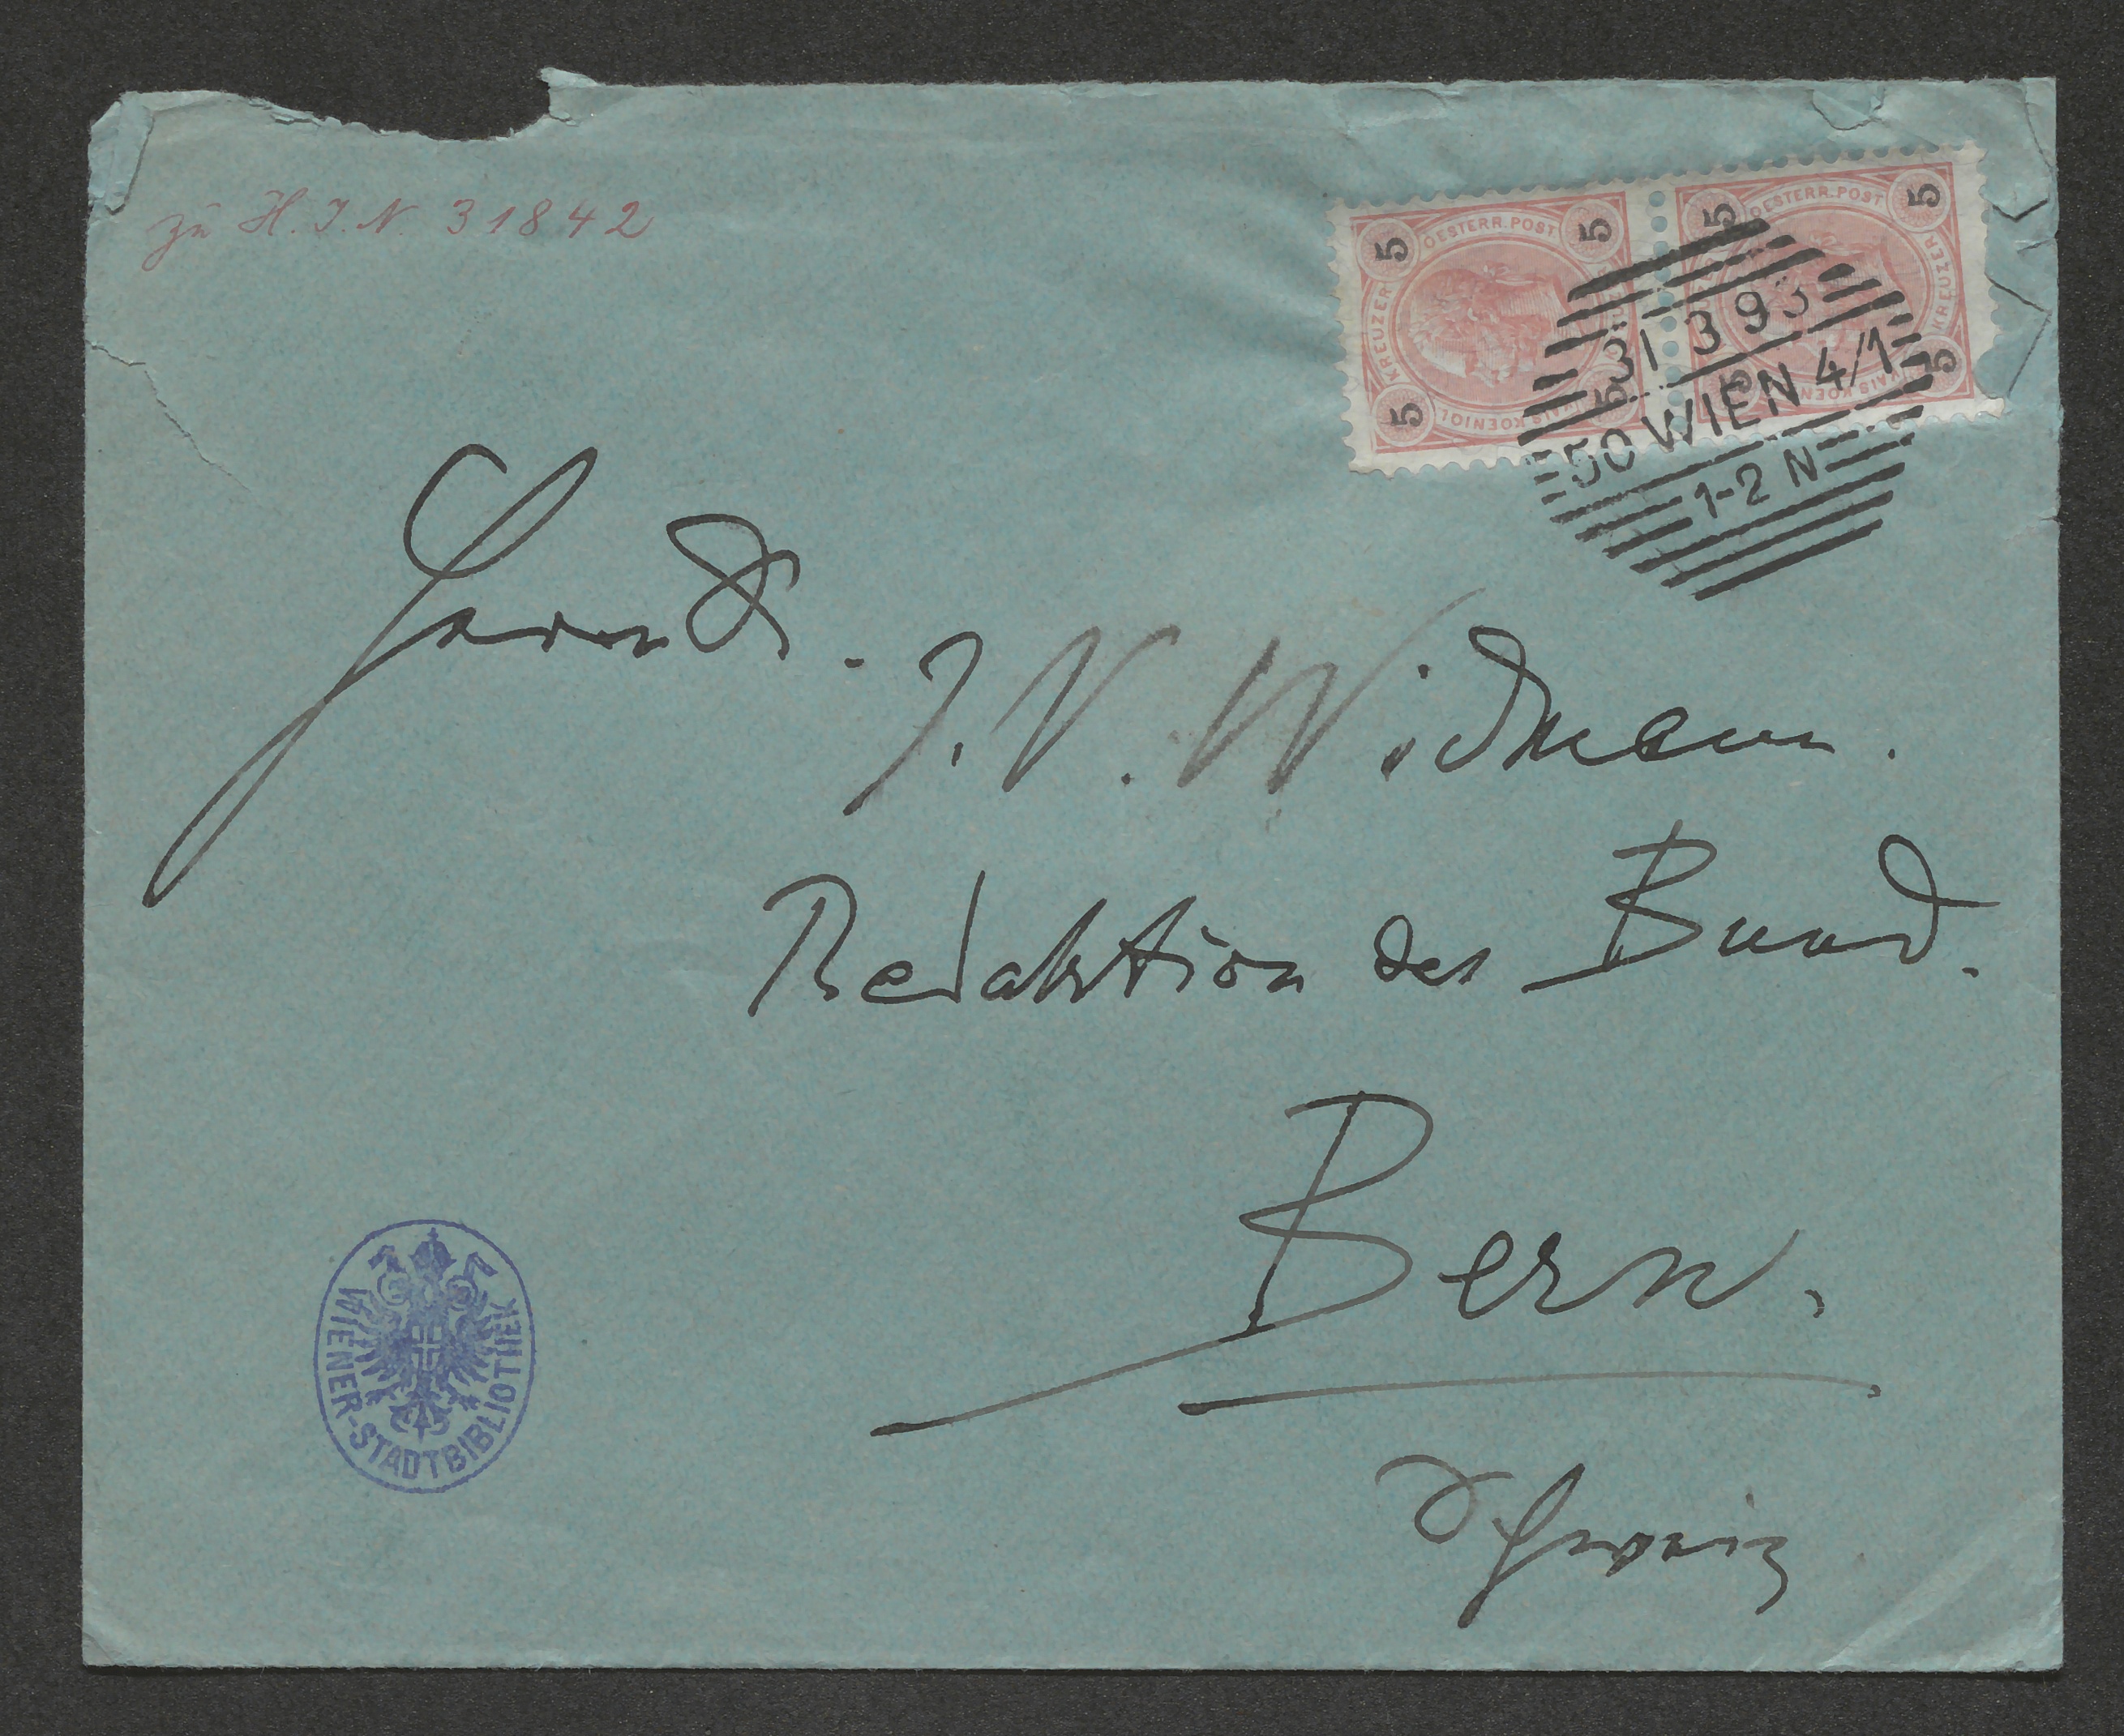 zu H. I. N. 31842
5 OESTERR. POST 5
KREUZER
5 5
5 OESTERR. POST 5
KREUZER
5 5
31 3 93
50 WIEN 4/1
1-2 N
Herrn Dr.
J. V. Widmann.
Redaktion des Bund.
Bern.
Schweiz
WIENER-STADTBIBLIOTHEK